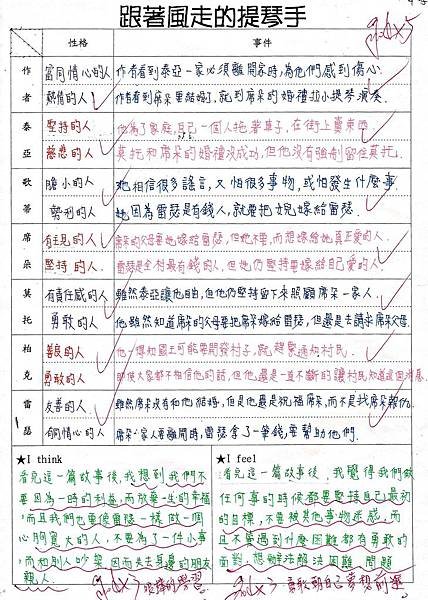 跟著風走的提琴手
性格 事件
作者 富同情心的人 作者看到泰亞一家必須離開家時,為他們感到傷心.
熱情的人 作者看到席朵要結婚了,就到席朵的婚禮拉小提琴演奏.
泰亞 堅持的人 他為了家庭,自己一個人拖著車子,在街上賣東西
慈悲的人 莫托和席朵的婚禮沒成功,但他沒有強制留住莫托.
歌蒂 膽小的人 她相信很多謠言,又怕很多事物,或怕發生什麼事.
勢利的人 她因為雷瑟是有錢人,就要把女兒嫁給雷瑟.
席朵 有主見的人 席朵的父母要她嫁給雷瑟,但她不要,而想嫁給她真正愛的人.
堅持的人 雷瑟是全村最有錢的人,但她仍堅持要嫁給自己愛的人.
莫托 有責任感的人 雖然泰亞讓他自由,但他仍堅持留下來照顧席朵一家人.
勇敢的人 他雖然知道席朵的父母要把席朵嫁給雷瑟,但還是去請求席朵父母.
柏克 善良的人 他一得知國王可能要開發村子,就趕緊通知村民.
勇敢的人 即使大家都不相信他的話,但他還是一直不斷的讓村民知道這個消息.
雷瑟 友善的人 雖然席朵沒有和他結婚,但是他還是祝福席朵,而不是找席朵報仇.
有同情心的人 席朵一家人要離開時,雷瑟拿了一筆錢要幫助他們.
★I think
看完這一篇故事後,我想到我們不
要因為一時的利益,而放棄一生的幸福,
而且我們也要像雷瑟一樣,做一個
心胸寬大的人,不要為了一件小事
,而和別人吵架,因而失去身邊的朋友
親人.
★I feel
看完這一篇故事後,我覺得我們做
任何事的時候都要堅持自己最初
的目標,不要被其他事物迷惑,而
且不管遇到什麼困難都有勇敢的
面對,想辦法解決困難、問題.
勇敢朝自己夢想前進